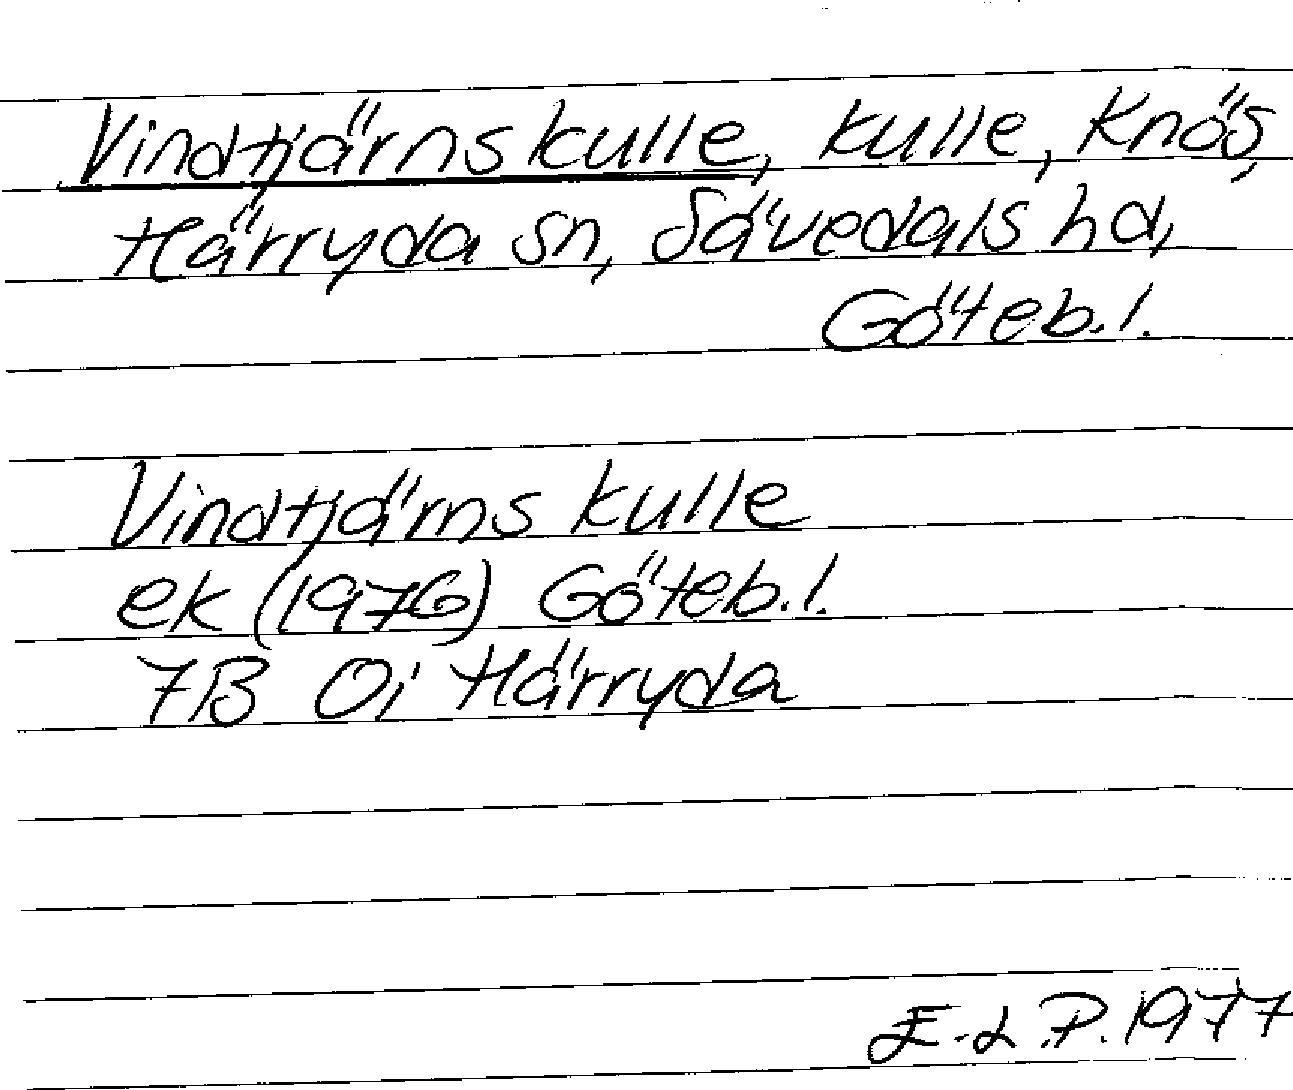 Vindtjärns kulle, kulle, Knös,
Härryda sn, Sävedals hd,
Göteb.l.
Vindtjärns kulle
ek (1976) Göteb.l.
7B 0i Härryda
E.L.P. 1977